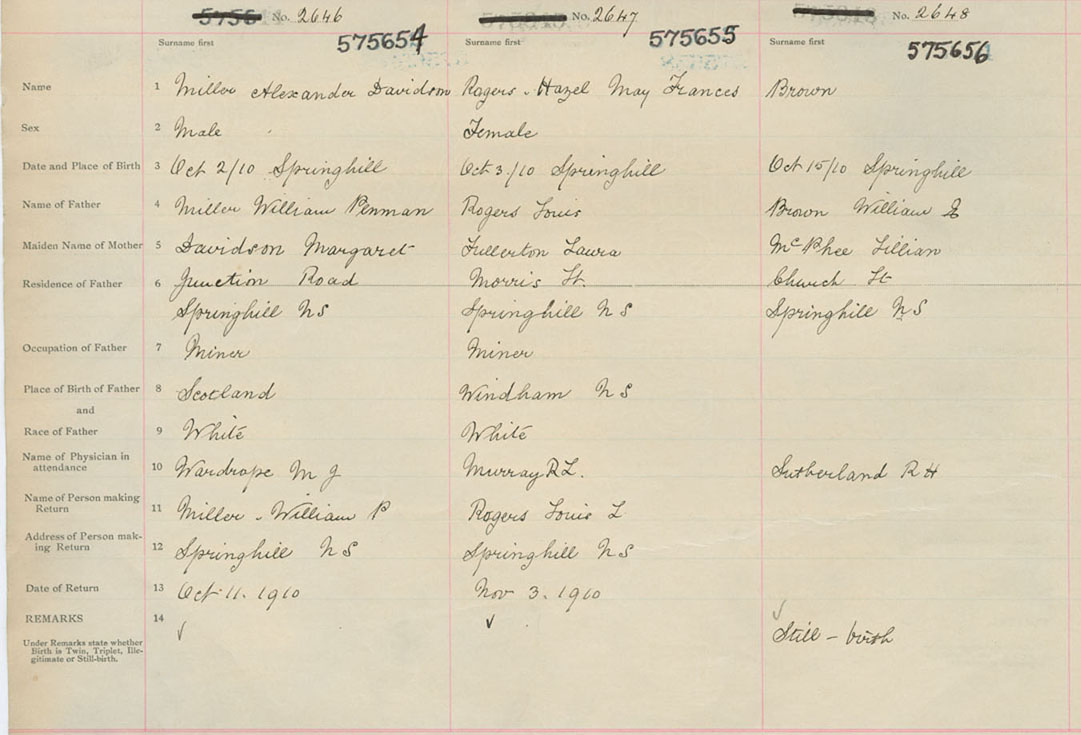 5756 No. 2646 No. 2647 No. 2648
Surname first 575654 Surname first 575655 Surname first 575656
Name 1 Miller Alexander Davidson Rogers - Hazel May Frances Brown
Sex 2 Male Female
Date and Place of Birth 3 Oct 2/10 Springhill Oct 3/10 Springhill Oct 15/10 Springhill
Name of Father 4 Miller William Penman Rogers Louis Brown William
Maiden Name of Mother 5 Davidson Margaret Fullerton Laura McPhee Lillian
Residence of Father 6 Junction Road Morris St. Church St
Springhill NS Springhill NS Springhill NS
Occupation of Father 7 Miner Miner
Place of Birth of Father 8 Scotland Windham NS
and
Race of Father 9 White White
Name of Physician in
attendance 10 Wardrope M J Murray R L. Sutherland R H
Name of Person making
Return 11 Miller - William P Rogers Louis L
Address of Person mak-
ing Return 12 Springhill NS Springhill NS
Date of Return 13 Oct 11. 1910 Nov 3. 1910
REMARKS 14
Under Remarks state whether
Birth is Twin, Triplet, Ille-
gitimate or Still-birth. Still - birth